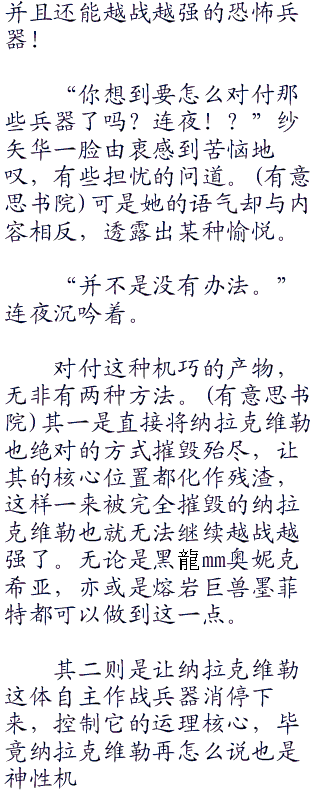 并且还能越战越强的恐怖兵
器！
“你想到要怎么对付那
些兵器了吗？连夜！？”纱
矢华一脸由衷感到苦恼地
叹，有些担忧的问道。(有意
思书院)可是她的语气却与内
容相反，透露出某种愉悦。
“并不是没有办法。”
连夜沉吟着。
对付这种机巧的产物，
无非有两种方法。(有意思书
院)其一是直接将纳拉克维勒
也绝对的方式摧毁殆尽，让
其的核心位置都化作残渣，
这样一来被完全摧毁的纳拉
克维勒也就无法继续越战越
强了。无论是黑龍mm奥妮克
希亚，亦或是熔岩巨兽墨菲
特都可以做到这一点。
其二则是让纳拉克维勒
这体自主作战兵器消停下
来，控制它的运理核心，毕
竟纳拉克维勒再怎么说也是
神性机